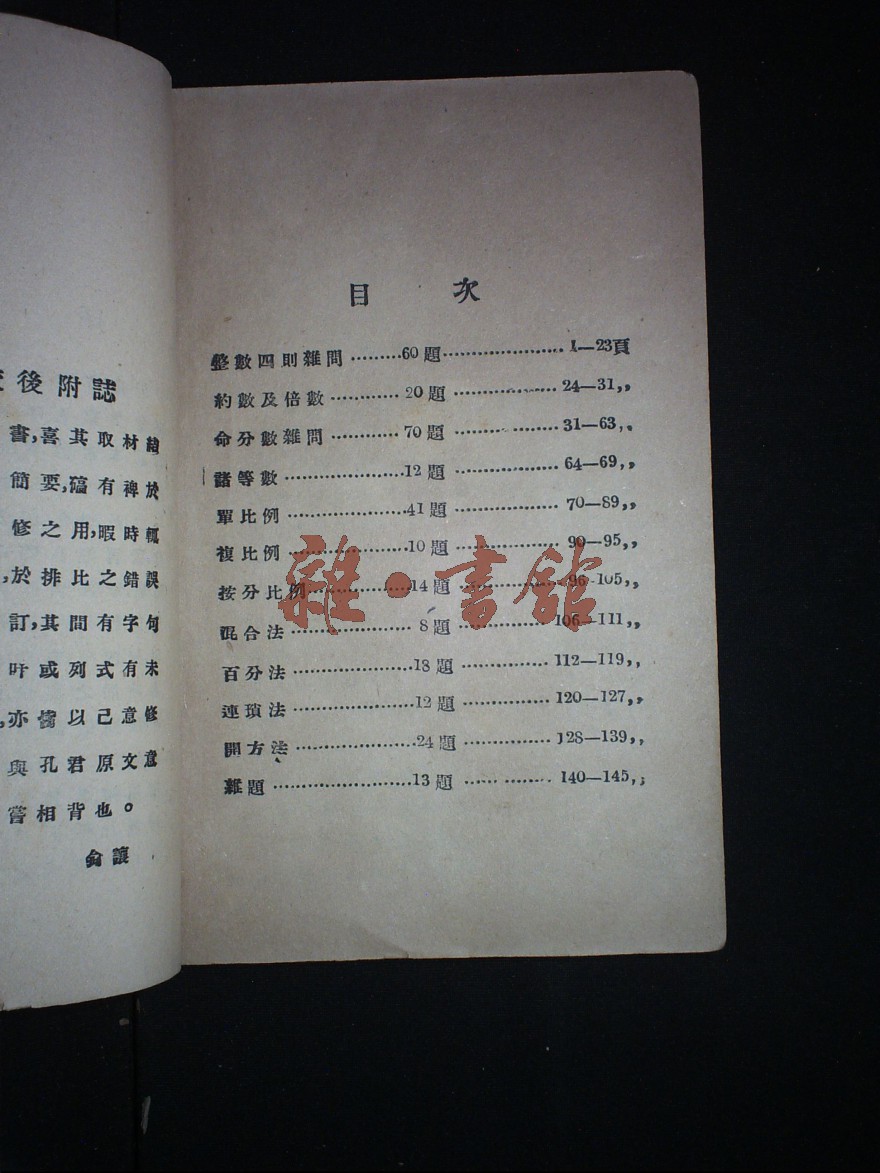 後附誌
書，喜其取材
簡要，確有裨於
修之用，暇時輒
於排比之錯誤
訂，其間有字句
或列式有未
亦僭以己意修
與孔君原文意
嘗相背也。
侖讓
目 次
整數四則雜問………60題…………………1—23頁
約數及倍數…………20題…………………24—31,,
命分數雜問…………70題…………………31—63,,
諸等數………………12題…………………64—69,,
單比例………………41題…………………70—89,,
複比例………………10題…………………90—95,,
按分比例……………14題…………………96—105,,
混合法………………8題…………………106—111,,
百分法………………18題…………………112—119,,
連瑣法………………12題…………………120—127,,
開方法………………24題…………………128—139,,
雜題…………………13題…………………140—145,,
雜·書館